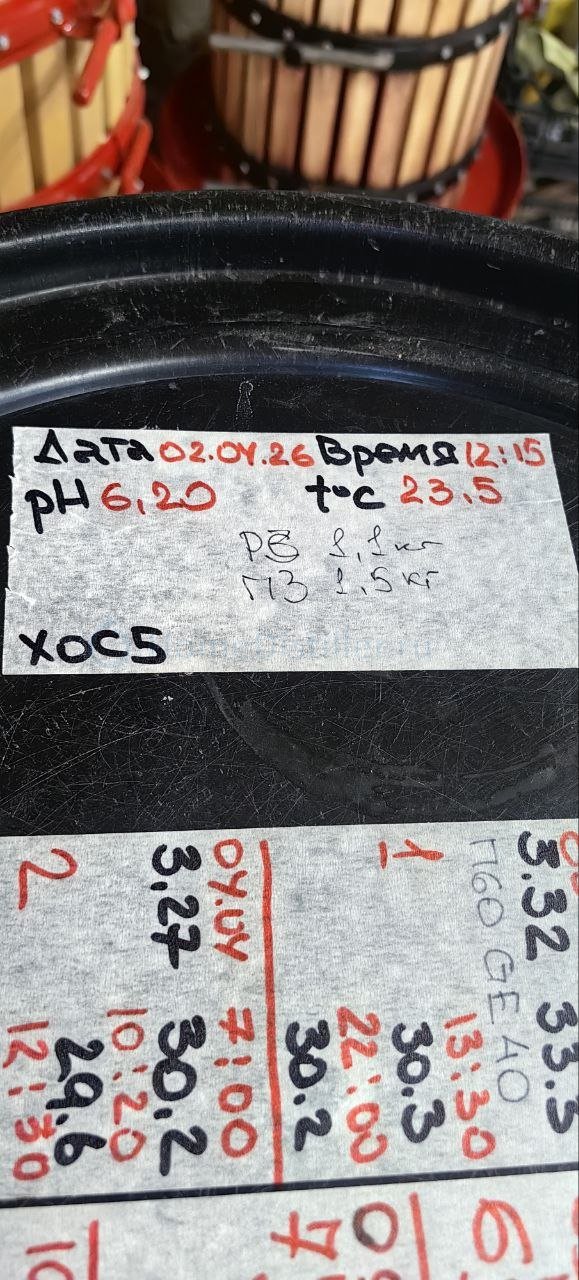 Дата 02.04.26 Время 12:15
pH 6,20 t°c 23.5
РВ 1,1кг
ПЗ 1,5кг
ХОС5
3.32 33.5
П60 GE 40
1 13:30
30.3
22:00
30.2
04.04 7:00
3.27 30.2
10:20
29.6
2 12:30